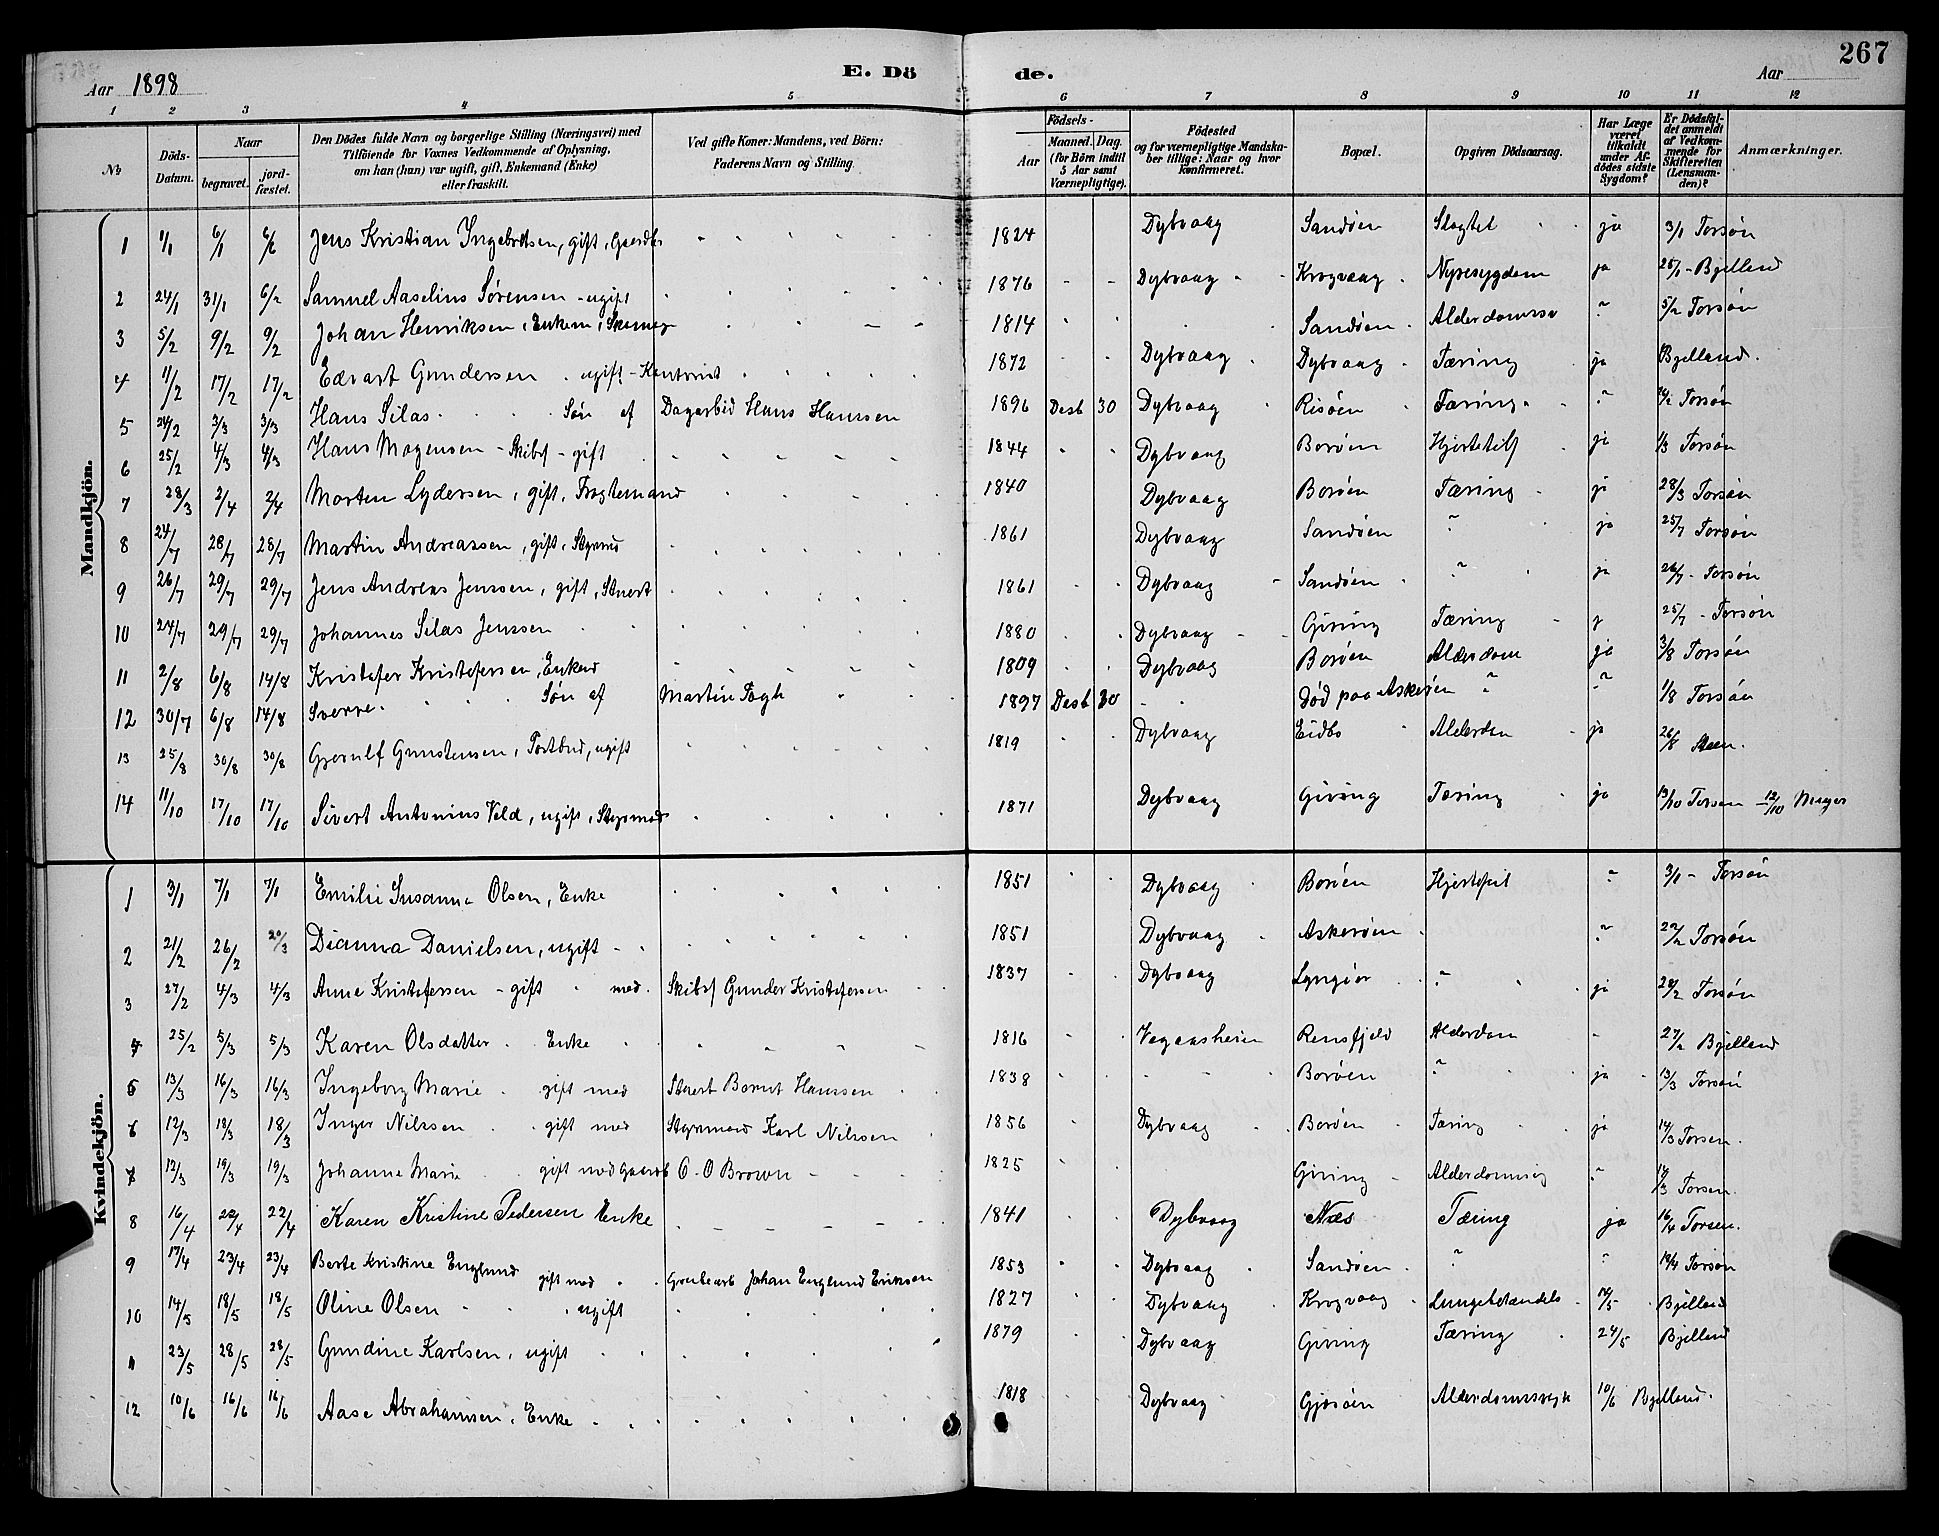 267
Aar 1898 E. Dö de. Aar
1 2 3 4 5 6 7 8 9 10 11 12
№
Döds-Datum.
Naar
begravet.
jord-fæstet.
Den Dödes fulde Navn og borgerlige Stilling (Næringsvei) med
Tilföiende for Voxnes Vedkommende af Oplysning,
om han (hun) var ugift, gift, Enkemand (Enke)
eller fraskilt.
Ved gifte Koner: Mandens, ved Börn:
Faderens Navn og Stilling.
Födsels-
Aar
Maaned. Dag.
(for Börn indtil 5 Aar samt Værnepligtige).
Födested
og for værnepligtige Mandskaber tillige: Naar og hvor konfirmeret.
Bopæl.
Opgiven Dödsaarsag.
Har Læge været tilkaldt under Afdödes sidste Sygdom?
Er Dödsfaldet anmeldt af Vedkommende for Skifteretten (Lensmanden)?
Anmærkninger.
Mandkjön.
1 1/1 6/1 6/2 Jens Kristian Ingebretsen, gift, 1824 Dybvaag Sandøen Slagtet ja 3/1 Torsøn
2 24/1 31/1 6/2 Samuel Aaselius Sørensen - ugift 1876 Dybvaag Krogvaag Nyresygdom ja 25/1 - Bjelland
3 5/2 9/2 9/2 Johan Henriksen, Enkem, 1814 Sandøen 5/2 Torsøn
4 11/2 17/2 17/2 Edvart Gundersen ugift - Kontorist 1872 Dybvaag Dybvaag Tæring ja Bjelland.
5 24/2 3/3 3/3 Hans Silas Søn af Dagarbeid Hans Hanssen 1896 Desb 30 Dybvaag Risøen Tæring Torsøn
6 25/2 4/3 4/3 Hans Mogensen - Skibsf - gift 1844 Dybvaag Borøen ja 1/3 Torsøn
7 28/3 2/4 2/4 Morten Lydersen, gift, Fragtemand 1840 Dybvaag Borøen Tæring ja 28/3 Torsøn
8 24/7 28/7 28/7 Martin Andreassen, gift, Styrmd 1861 Dybvaag Sandøen " ja 25/7 Torsøn
9 26/7 29/7 29/7 Jens Andreas Jenssen, gift, Stuert 1861 Dybvaag Sandøen " ja 26/7 - Torsøn
10 24/7 29/7 29/7 Johannes Silas Jenssen 1880 Dybvaag Giving Tæring j 25/7 - Torsøn
11 2/8 6/8 14/8 Kristofer Kristofersen, Enkem 1809 Dybvaag Borøen Alderdom ja 3/8 Torsøn
12 30/7 6/8 14/8 Sverre Søn af Martin Fogh 1897 Desb 30 Død paa Askerøen " " 1/8 Torsøn
13 25/8 30/8 30/8 Gunstensen, Postbud, ugift 1819 Dybvaag Eidbo Alderdom ja 26/8
14 11/10 17/10 17/10 Sivert Antonius Veld, ugift, Styrmad 1871 Dybvaag Giving Tæring ja 13/10 Torsen - 12/10
Kvindekjön.
1 3/1 7/1 7/1 Emilie Susanna Olsen, Enke 1851 Dybvaag Borøen " 3/1 - Torsøn
2 21/2 26/2 20/3 Dianna Danielsen, ugift 1851 Dybvaag Askerøen " 22/2 Torsøn
3 27/2 4/3 4/3 Anne Kristofersen - gift med. Skibsf Gunder Kristofersen 1837 Dybvaag Lyngiør " ja 28/2 Torsøn
4 25/2 5/3 5/3 Karen Olsdatter Enke 1816 Vegaasheien Rensfjeld Alderdom 27/2 Bjelland
5 13/3 16/3 16/3 Ingeborg Marie gift med Stuert Bernt Hanssen 1838 Borøen " ja 13/3 Torsøn
6 12/3 18/3 18/3 Inger Nilssen gift med Styrmand Karl Nilssen 1856 Dybvaag Borøen Tæring ja 14/3 Torsen.
7 12/3 19/3 19/3 Johanne Marie gift med Gaardb O. O Brown 1825 Giving " Torsen.
8 16/4 22/4 22/4 Karen Kristine Pedersen Enke 1841 Dybvaag Næs Tæring ja 16/4 Torsen.
9 17/4 23/4 23/4 Berte Kristine Englund gift med Johan Englund Eriksen 1853 Dybvaag Sandøen " " 19/4 Torsøn
10 14/5 18/5 18/5 Oline Olsen ugift 1827 Dybvaag Krogvaag Lungebetændels Bjelland
11 23/5 28/5 28/5 Gundine Karlsen, ugift 1879 Dybvaag Giving Tæring 24/5 Bjelland
12 10/6 16/6 16/6 Aase Abrahamsen, Enke 1818 Dybvaag Gjesøen 10/6 Bjelland.